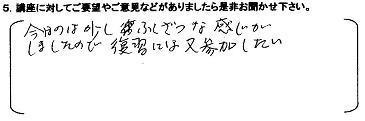 5. 講座に対してご要望やご意見などがありましたら是非お聞かせ下さい。
今日のは少しふくざつな感じが
しましたので復習には又参加したい